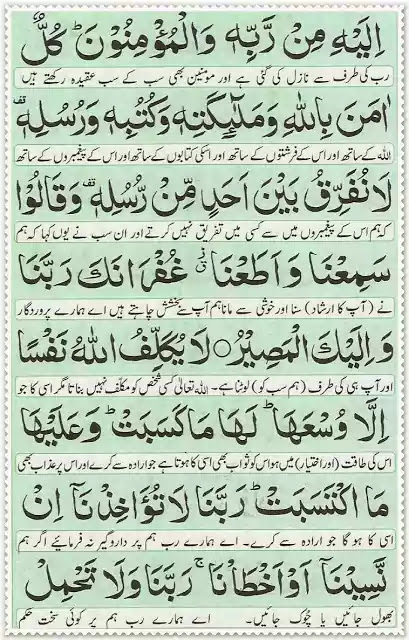 اِلَيْهِ مِنْ رَّبِّهٖ وَالْمُؤْمِنُوْنَ ؕ كُلٌّ
رب کی طرف سے نازل کی گئی ہے اور مومنین بھی سب کے سب عقیدہ رکھتے ہیں
اٰمَنَ بِاللّٰهِ وَمَلٰٓئِكَتِهٖ وَكُتُبِهٖ وَرُسُلِهٖ قف
اللہ کے ساتھ اور اس کے فرشتوں کے ساتھ اور اسکی کتابوں کے ساتھ اور اس کے پیغمبروں کے ساتھ
لَا نُفَرِّقُ بَيْنَ اَحَدٍ مِّنْ رُّسُلِهٖ قف وَقَالُوْا
کہ ہم اس کے پیغمبروں میں سے کسی میں تفریق نہیں کرتے اور ان سب نے یوں کہا کہ ہم
سَمِعْنَا وَاَطَعْنَا غُفْرَانَكَ رَبَّنَا
نے (آپ کا ارشاد) سنا اور خوشی سے مانا ہم آپ سے بخشش چاہتے ہیں اے ہمارے پروردگار
وَاِلَيْكَ الْمَصِيْرُ ○ لَا يُكَلِّفُ اللّٰهُ نَفْسًا
اور آپ ہی کی طرف (ہم سب کو) لوٹنا ہے۔ اللہ تعالیٰ کسی شخص کو مکلف نہیں بناتا مگر اسی کا جو
اِلَّا وُسْعَهَا ؕ لَهَا مَا كَسَبَتْ وَعَلَيْهَا
اس کی طاقت (اور اختیار) میں ہو اس کو ثواب بھی اسی کا ہوتا ہے جو ارادہ سے کرے اور اس پر عذاب بھی
مَا اكْتَسَبَتْ ؕ رَبَّنَا لَا تُؤَاخِذْنَآ اِنْ
اسی کا ہو گا جو ارادہ سے کرے۔ اے ہمارے رب ہم پر داروگیر نہ فرمائیے اگر ہم
نَّسِيْنَآ اَوْ اَخْطَاْنَا ۚ رَبَّنَا وَلَا تَحْمِلْ
بھول جائیں یا چوک جائیں۔ اے ہمارے رب ہم پر کوئی سخت حکم